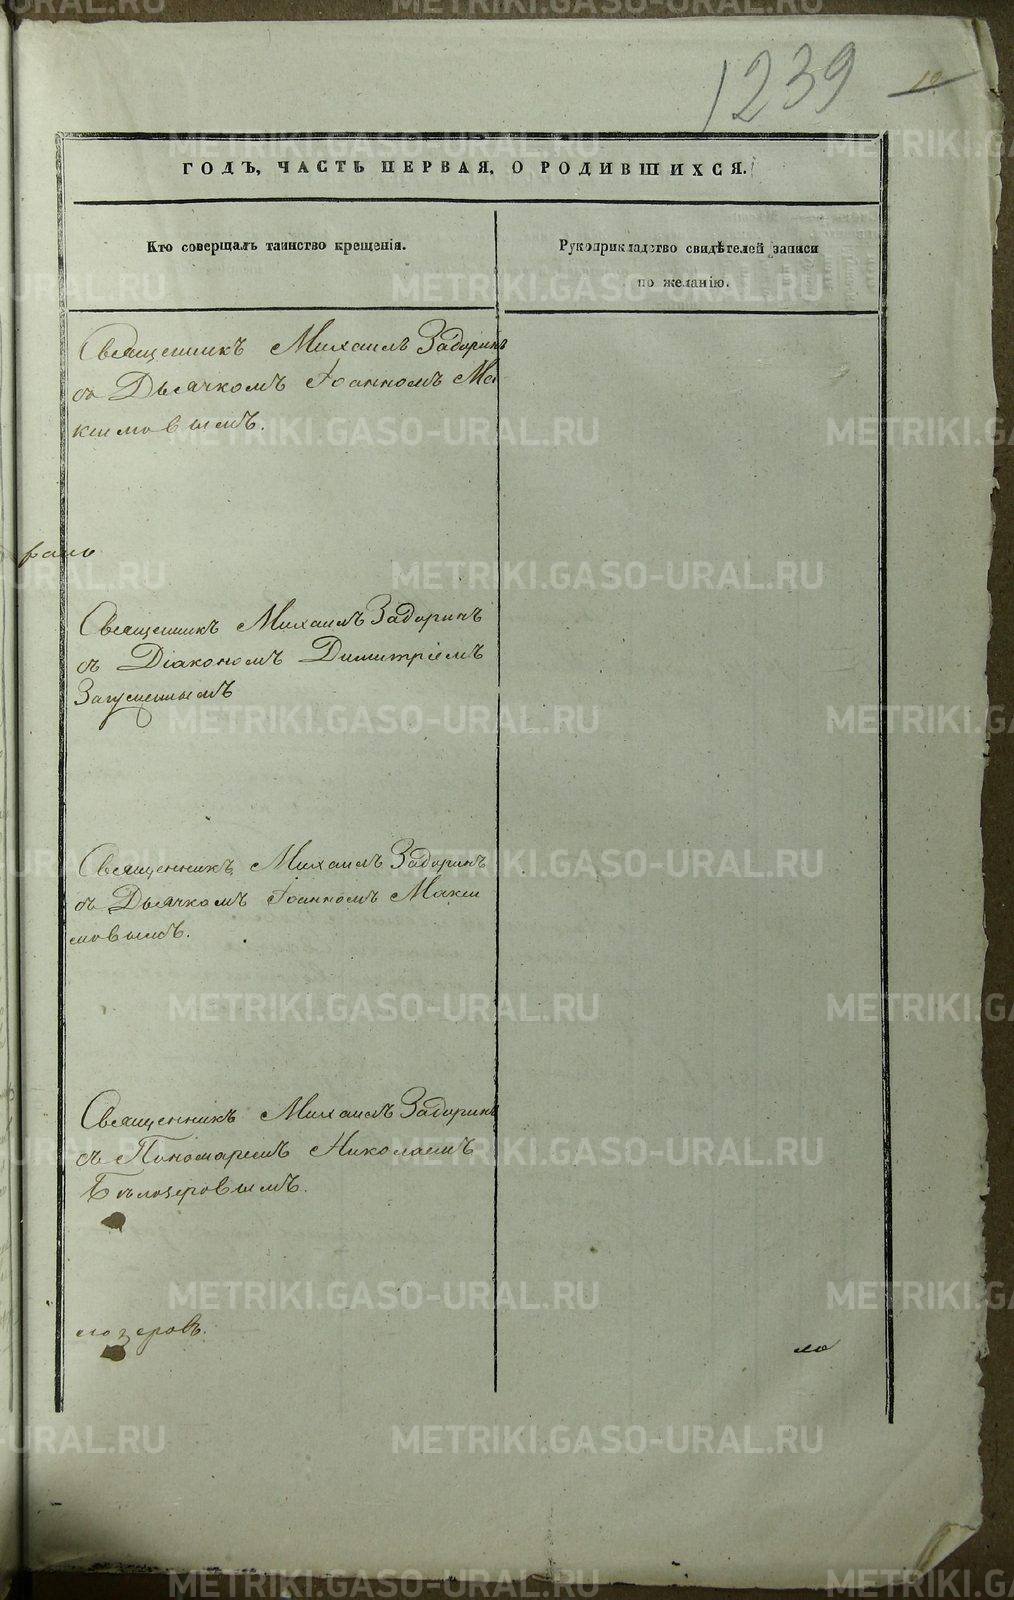 1239
10
ГОДЪ, ЧАСТЬ ПЕРВАЯ, О РОДИВШИХСЯ.
Кто совершалъ таинство крещенія.
Рукоприкладство свидѣтелей записи
по желанію.
Священникъ Михаилъ Задоринъ
съ Дьячкомъ Іоанномъ Ма-
ксимовымъ.
Священникъ Михаилъ Задоринъ
съ Діакономъ Димитріемъ
Священникъ Михаилъ Задоринъ
съ Дьячкомъ Іоанномъ Макси
мовымъ.
Священникъ Михаилъ Задоринъ
съ Пономаремъ Николаемъ
Бѣлозеровымъ.
лозеровъ.
METRIKI.GASO-URAL.RU